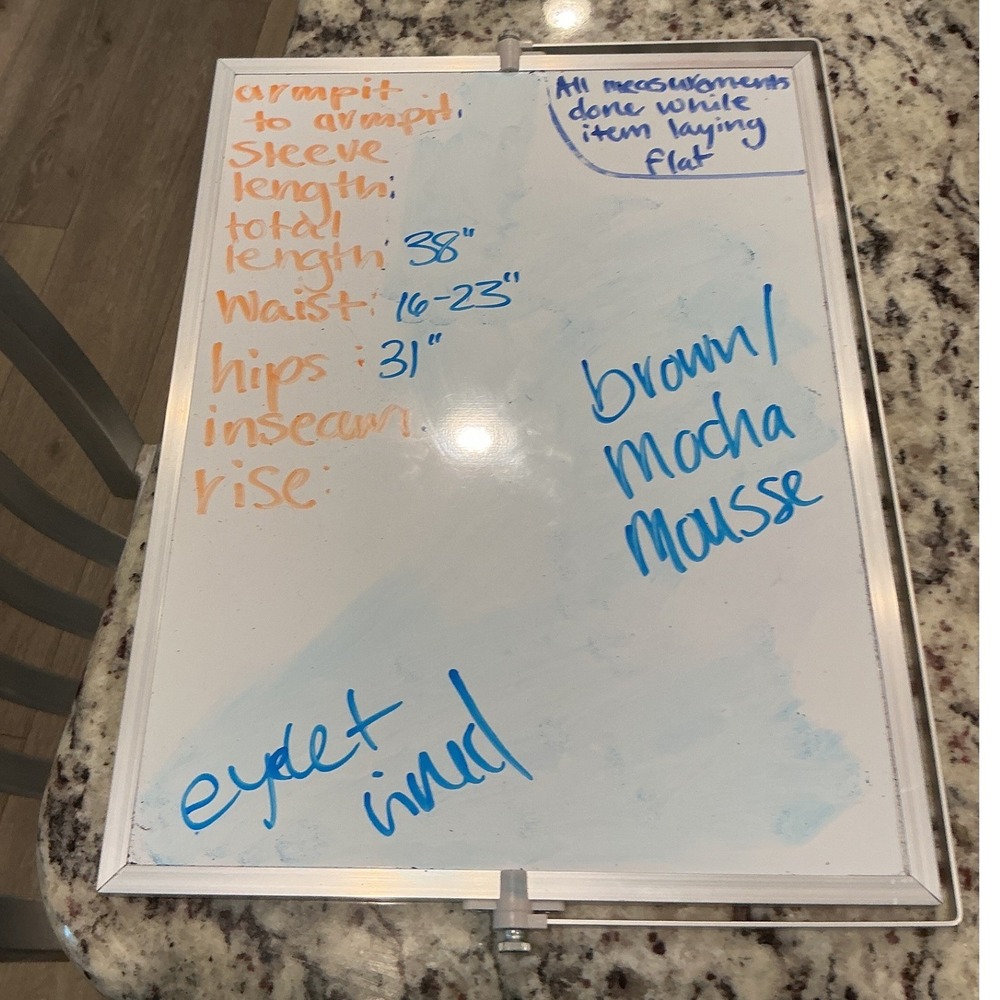 armpit
to armpit:
sleeve
length:
total
length: 38"
Waist: 16-23"
hips : 31"
inseam:
rise:
All measurements
done while
item laying
flat
brown/
mocha
mousse
eyelet
lined